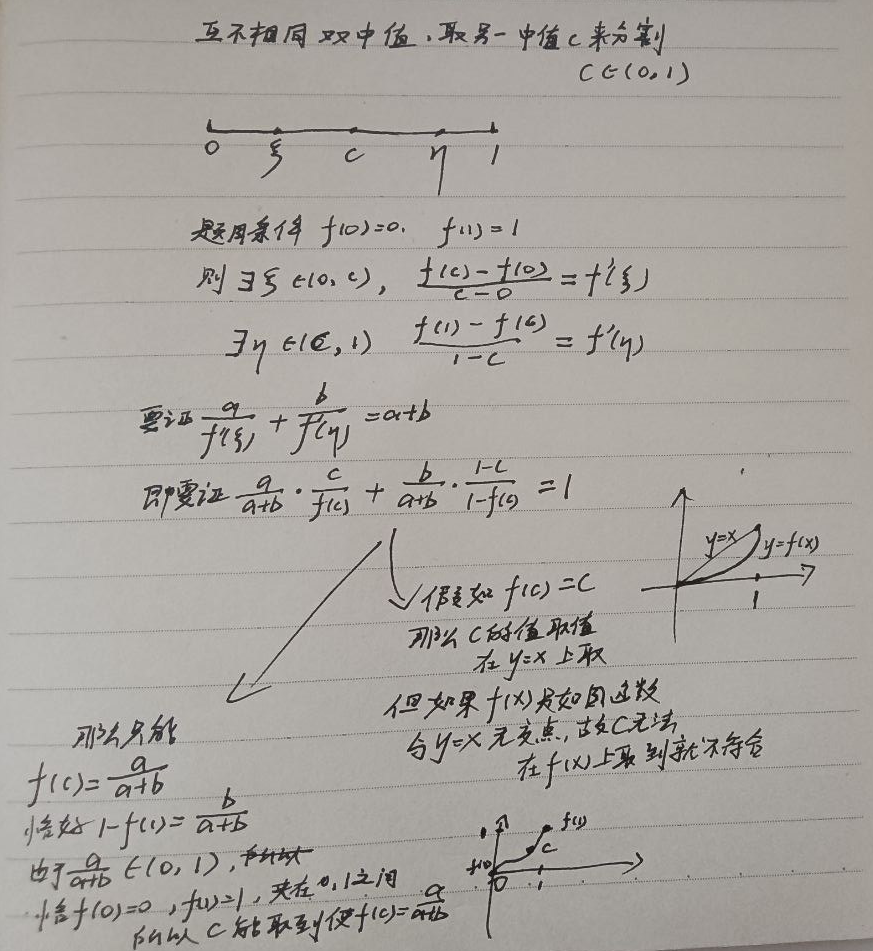 互不相同双中值,取另一中值c来分割
C∈(0,1)
0 ξ c η 1
题目条件 f(0)=0, f(1)=1
则 ∃ξ∈(0,c), \frac{f(c)-f(0)}{c-0}=f'(ξ)
∃η∈(C,1) \frac{f(1)-f(c)}{1-c}=f'(η)
要证 \frac{a}{f'(ξ)}+\frac{b}{f'(η)}=a+b
即要证 \frac{a}{a+b}·\frac{c}{f(c)}+\frac{b}{a+b}·\frac{1-c}{1-f(c)}=1
y=x y=f(x)
1
假如 f(c)=C
那么C的值取值
在y=x上取
但如果f(x)是如图函数
与y=x无交点,故C无法
在f(x)上取到就不符合
那么只能
f(c)=\frac{a}{a+b}
恰好1-f(1)=\frac{b}{a+b}
由于\frac{a}{a+b}∈(0,1),
恰f(0)=0,f(1)=1,夹在0,1之间
所以C能取到使f(c)=\frac{a}{a+b}
f(1)
c
f(0)
0 1